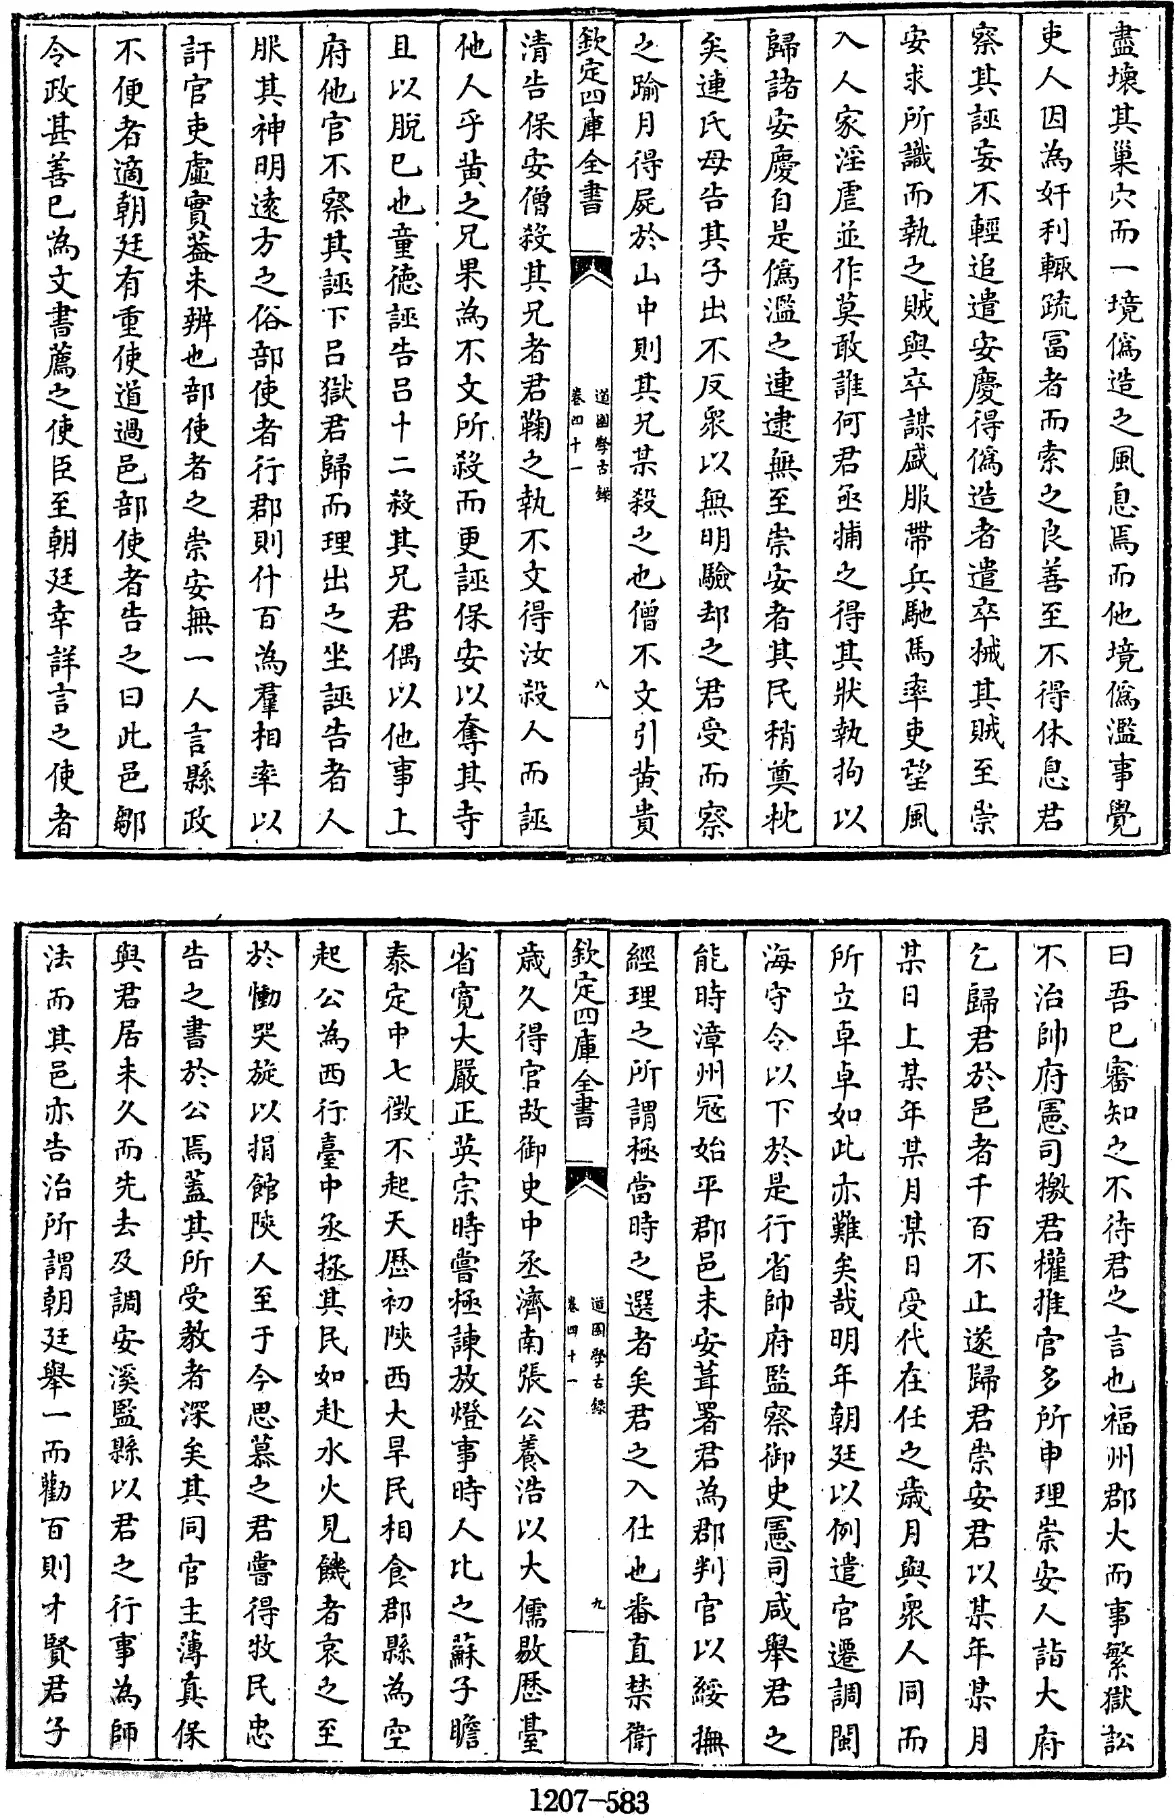 盡壊其巢穴而一境偽造之風息焉而他境偽濫事覺
吏人因為奸利輙疏冨者而索之良善至不得休息君
察其誣妄不輕追遣安慶得偽造者遣卒械其賊至崇
安求所識而執之賊與卒謀盛服帶兵馳馬率吏望風
入人家淫虐並作莫敢誰何君亟捕之得其狀執拘以
歸諸安慶自是偽濫之連逮無至崇安者其民稍奠枕
矣連氏母告其子出不反衆以無明驗却之君受而察
之踰月得屍於山中則其兄某殺之也僧不文引黄貴
欽定四庫全書
道園學古錄
卷四十一
八
清告保安僧殺其兄者君鞫之執不文得汝殺人而誣
他人乎黄之兄果為不文所殺而更誣保安以奪其寺
且以脱已也童徳誣告吕十二殺其兄君偶以他事上
府他官不察其誣下吕獄君歸而理出之坐誣告者人
服其神明逺方之俗部使者行郡則什百為羣相率以
訐官吏虛實葢未辨也部使者之崇安無一人言縣政
不便者適朝廷有重使道過邑部使者告之曰此邑鄒
令政甚善已為文書薦之使臣至朝廷幸詳言之使者
曰吾已審知之不待君之言也福州郡大而事繁獄訟
不治帥府憲司檄君權推官多所申理崇安人詣大府
乞歸君於邑者千百不止遂歸君崇安君以某年某月
某日上某年某月某日受代在任之歳月與衆人同而
所立卓卓如此亦難矣哉明年朝廷以例遣官遷調閩
海守令以下於是行省帥府監察御史憲司咸舉君之
能時漳州冦始平郡邑未安葺署君為郡判官以綏撫
經理之所謂極當時之選者矣君之入仕也畨直禁衛
欽定四庫全書
道園學古錄
卷四十一
九
歳久得官故御史中丞濟南張公養浩以大儒敭歴臺
省寛大嚴正英宗時嘗極諫放燈事時人比之蘇子瞻
泰定中七徴不起天厯初陜西大旱民相食郡縣為空
起公為西行臺中丞拯其民如赴水火見饑者哀之至
於慟哭旋以捐館陜人至于今思慕之君嘗得牧民忠
告之書於公焉蓋其所受教者深矣其同官主薄真保
與君居未久而先去及調安溪監縣以君之行事為師
法而其邑亦告治所謂朝廷舉一而勸百則才賢君子
1207-583